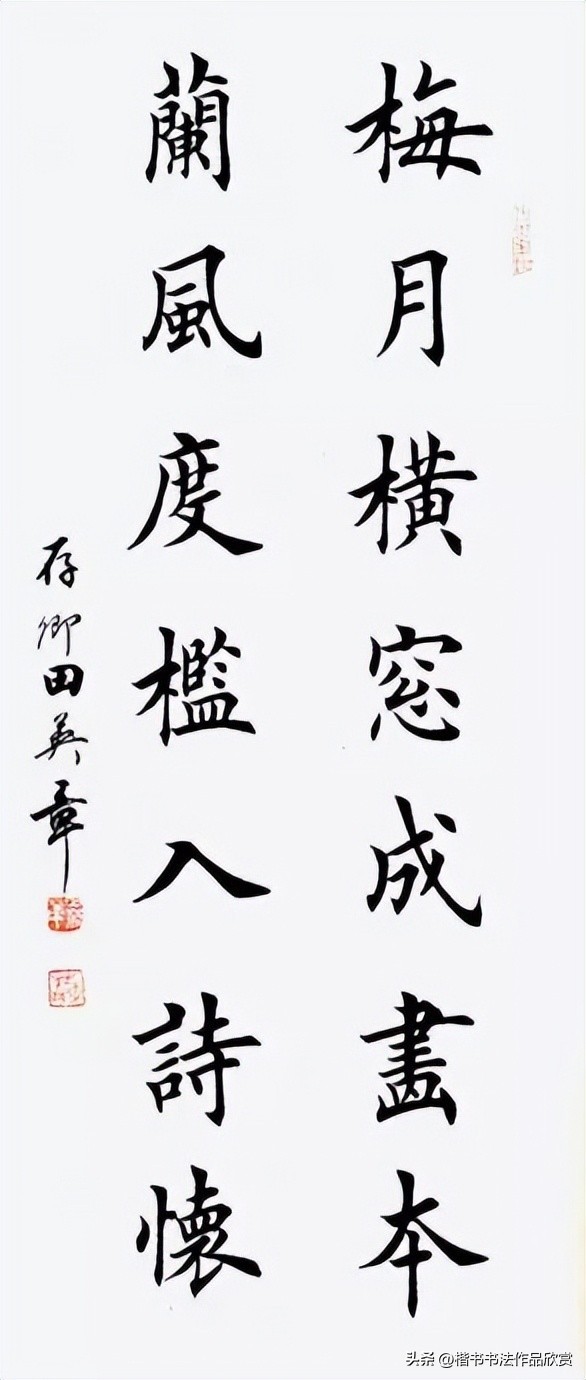 梅月橫窓成畫本
蘭風度檻入詩懷
存卿田英章
头条 @楷书书法作品欣赏